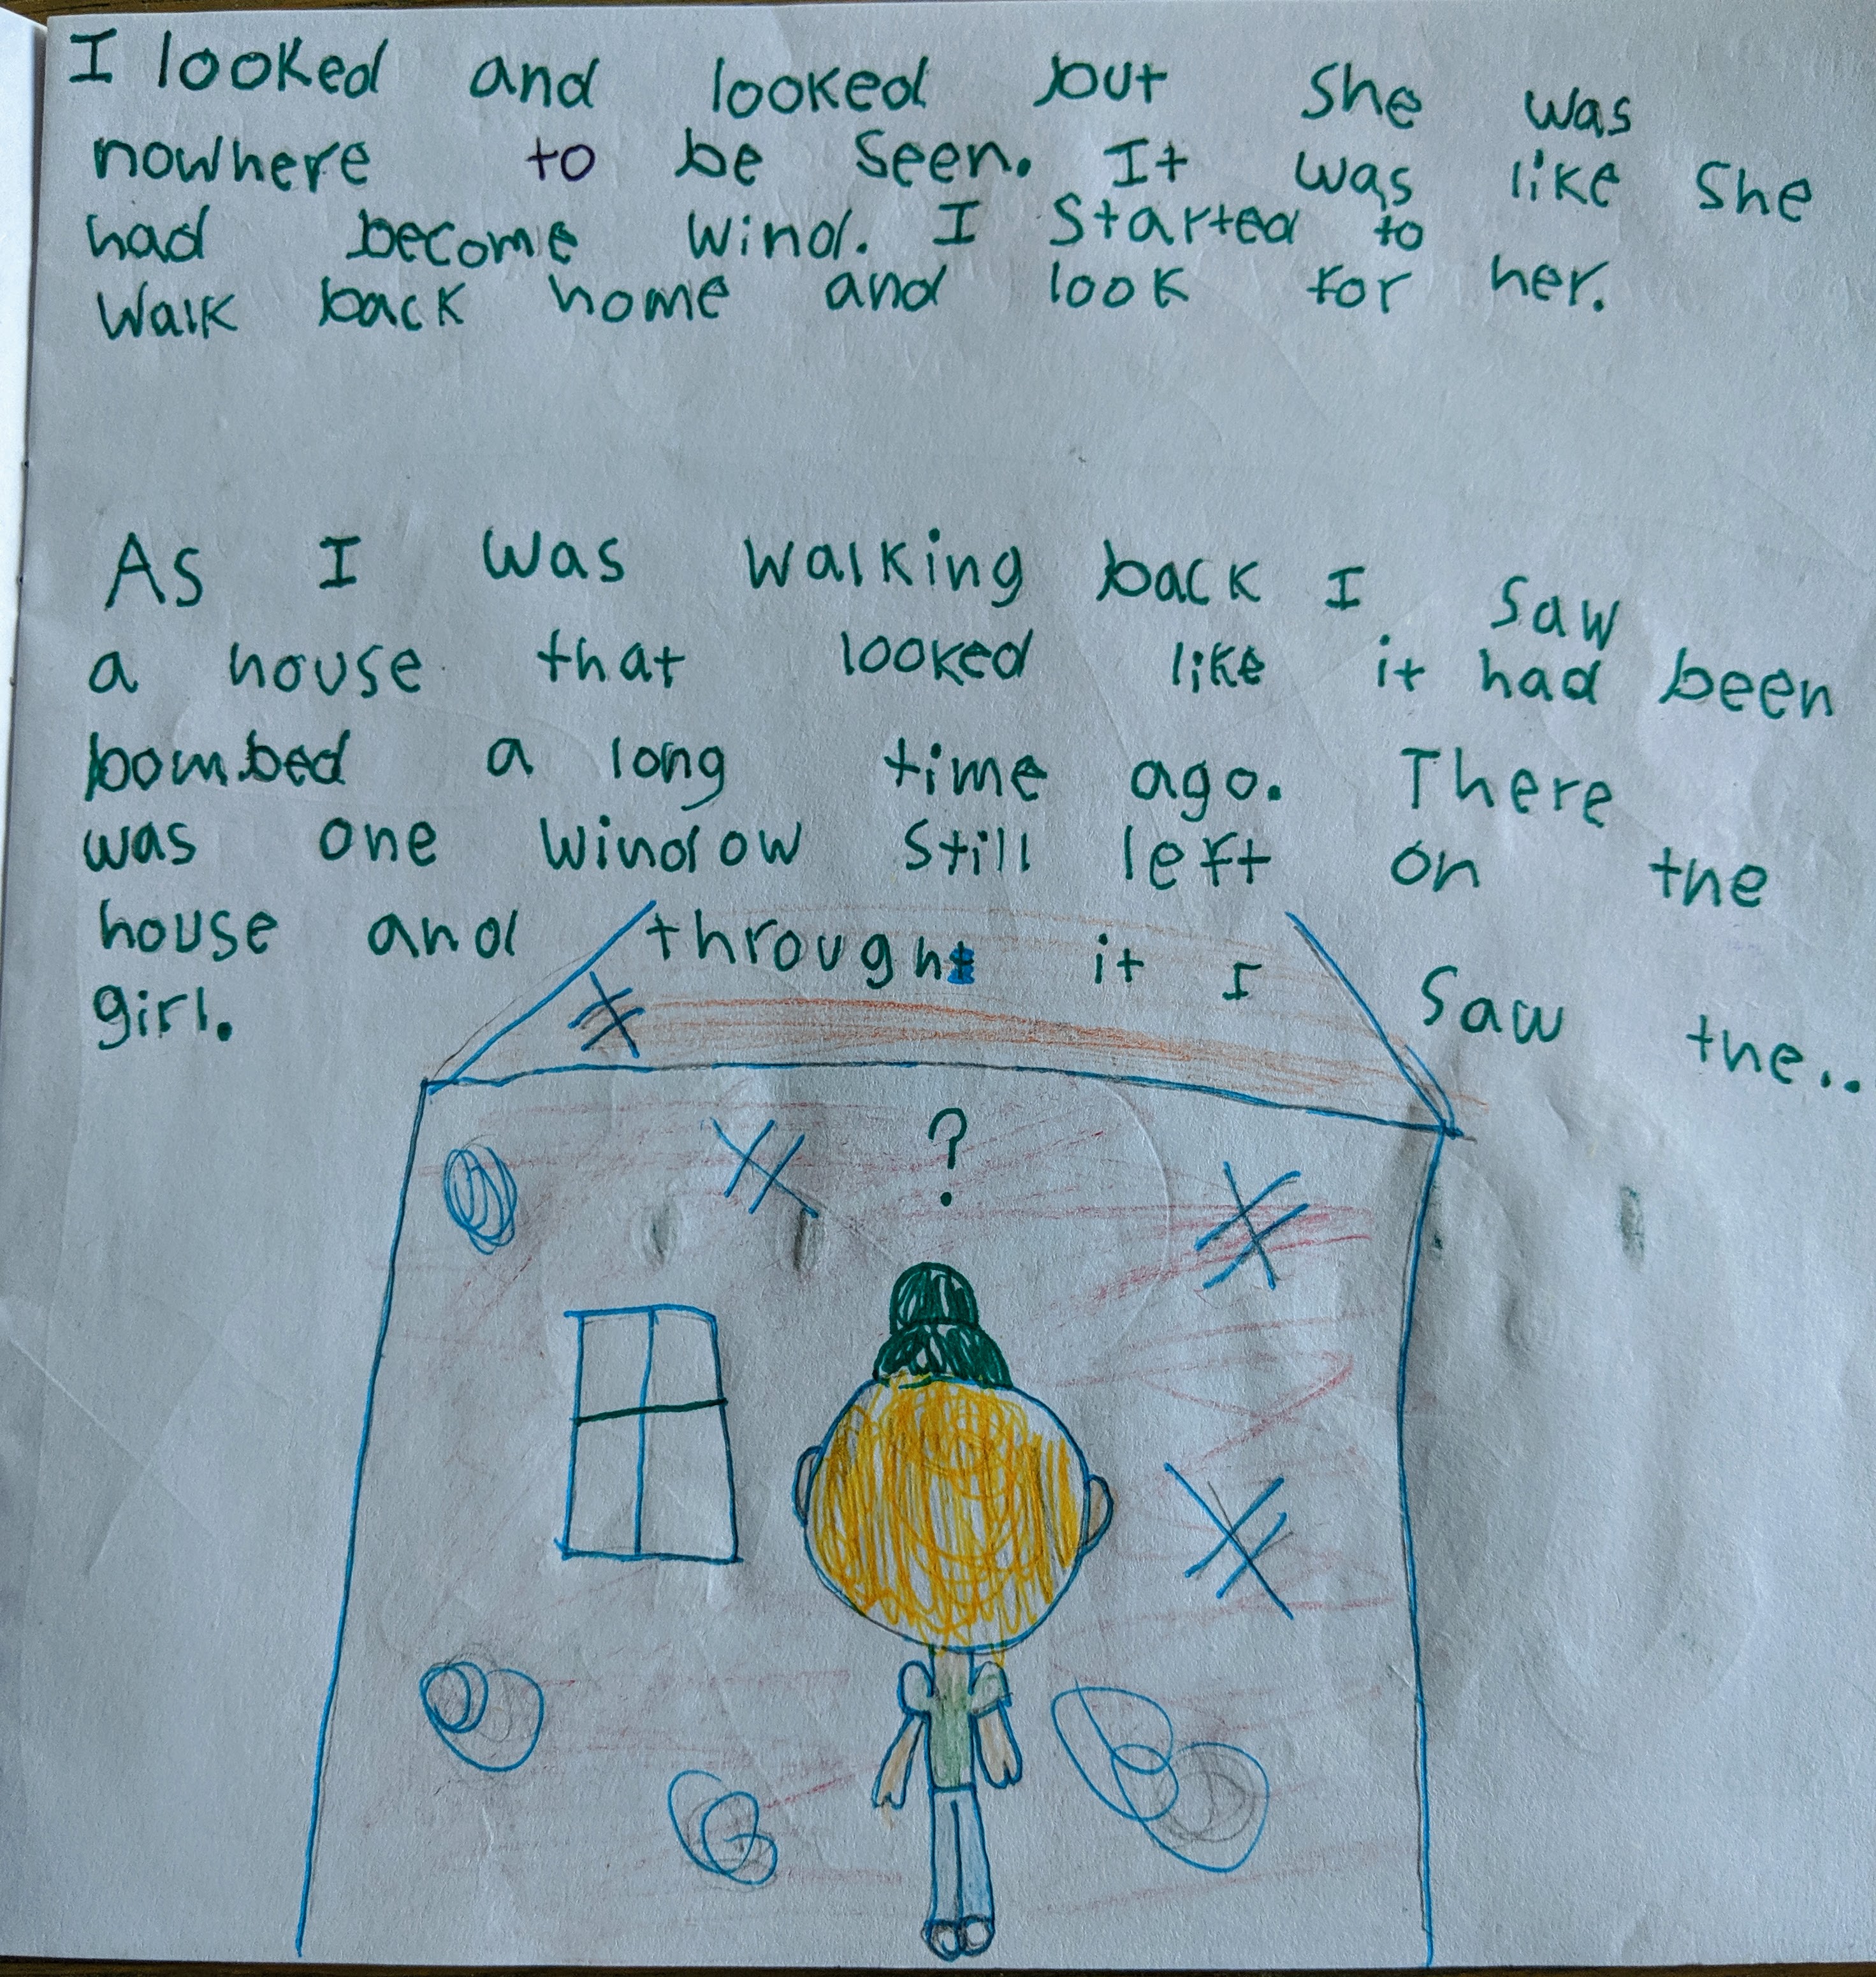 I looked and looked but she was
nowhere to be seen. It was like she
had become wind. I started to
walk back home and look for her.
As I was walking back I saw
a house that looked like it had been
bombed a long time ago. There
was one window still left on the
house and through it I saw the...
girl.
?